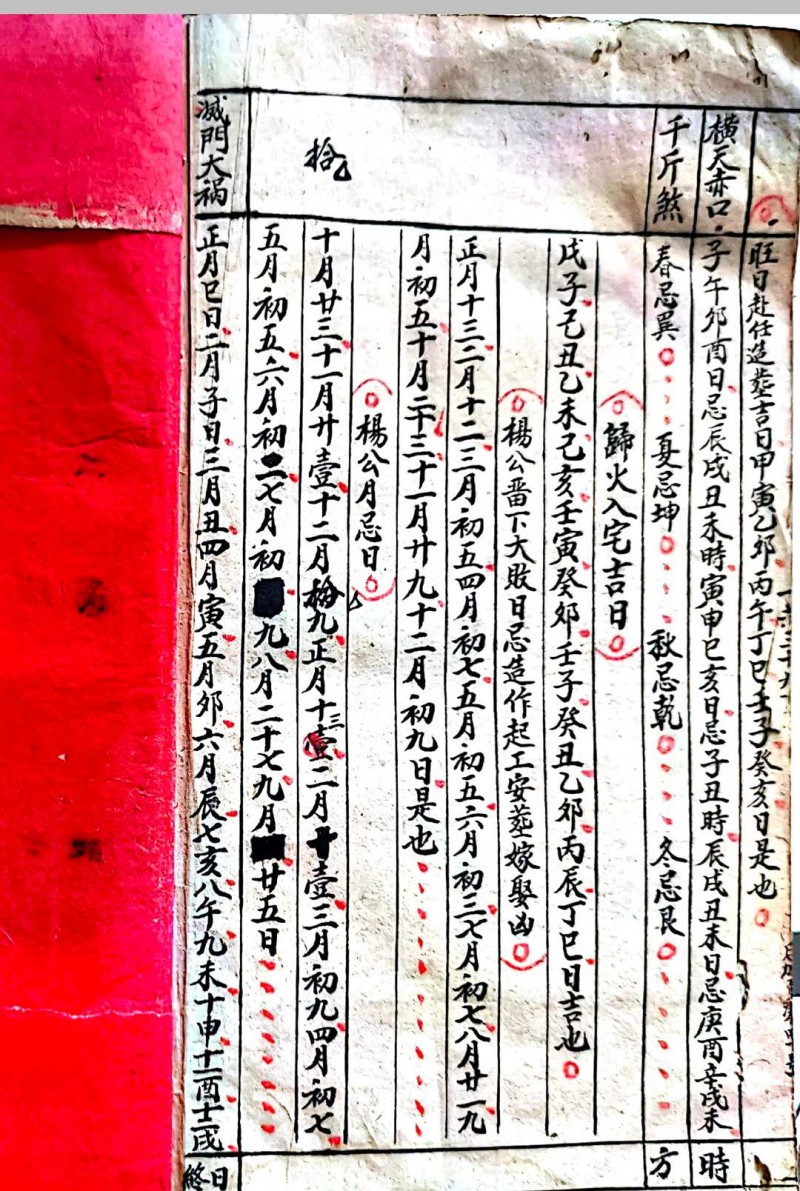 旺日赴任造葬吉日甲寅乙卯丙午丁巳壬子癸亥日是也
橫天赤口
子午卯酉日忌辰戌丑未時寅申巳亥日忌子丑時辰戌丑未日忌庚酉辛戌未
時
千斤煞
春忌巽 夏忌坤 秋忌乾 冬忌艮
方
歸火入宅吉日
戊子己丑乙未己亥壬寅癸卯壬子癸丑乙卯丙辰丁巳日吉也
楊公畨下大敗日忌造作起工安葬嫁娶凶
正月十三二月十二三月初五四月初七五月初五六月初三七月初七八月廿一九
月初五十月二十三十一月廿九十二月初九日是也
拾
楊公月忌日
十月廿三十一月廿壹十二月梅九正月十三壹二月十壹三月初九四月初七
五月初五六月初二七月初九八月二十七九月廿五日
滅門大禍
正月巳日二月子日三月丑四月寅五月卯六月辰七亥八午九未十申十一酉十二戌
日終